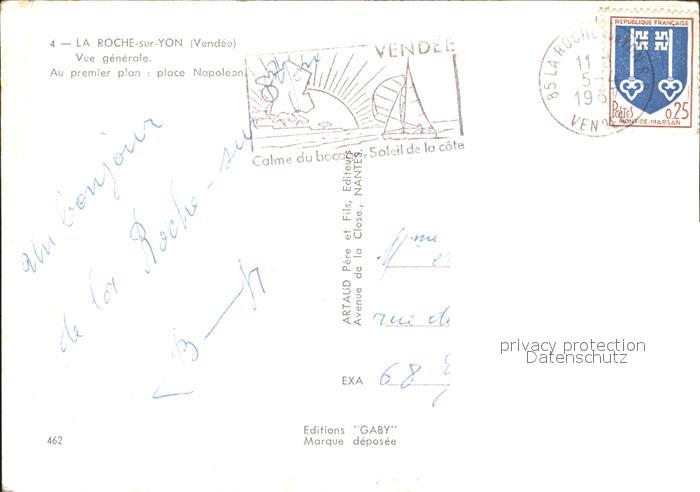 4 — LA ROCHE-sur-YON (Vendée)
Vue générale.
Au premier plan : place Napoléon.
VENDÉE
Calme du bocage Soleil de la côte
85 LA ROCHE
11
5
19
VENDÉE
REPUBLIQUE FRANÇAISE
Postes 0,25
MONT-DE-MARSAN
un bonjour
de la Roche-sur-Yon
ARTAUD Père et Fils, Editeurs
Avenue de la Close., NANTES.
Mme
rue de
68
EXA
privacy protection
Datenschutz
Editions "GABY"
Marque déposée
462